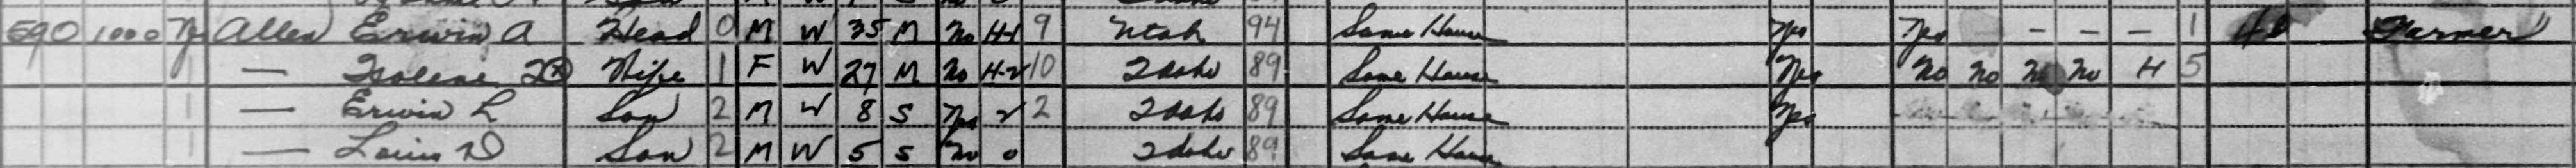 590 1000 Yes Allen Erwin A Head 0 M W 35 M No H-1 9 Utah 94 Same House Yes Yes - - - 1 40 Farmer
— Wife 1 F W 27 M No H-2 10 Idaho 89 Same House Yes No No No No H 5
— Erwin L Son 2 M W 8 S Yes 2 2 Idaho 89 Same House Yes
— Louis D Son 2 M W 5 S No 0 Idaho 89 Same House